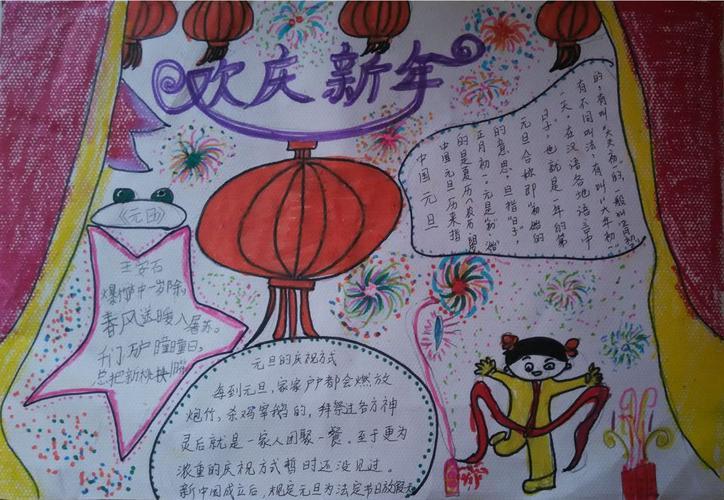 欢庆新年
中国元旦
中国元旦历来指
的是夏历(农历、阴
正月初一。元是"初""始"
的意思,旦指"日子",
元旦合称即"初始的
日子",也就是一年的第
一天。在汉语各地语言中
有不同叫法,有叫"大年初一"
的,有叫"大天初一"的,一般叫
王安石
爆竹中一岁除,
春风送暖入屠苏。
千门万户瞳瞳日,
总把新桃换
元旦的庆祝方式
每到元旦,家家户户都会燃放
炮竹,杀鸡宰鹅的,拜祭过各方神
灵后就是一家人团聚一餐。至于更为
浓重的庆祝方式暂时还没见过。
新中国成立后,规定元旦为法定节日放假